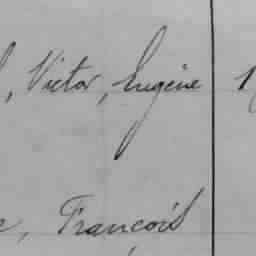 , Victor, Eugène 1
, François